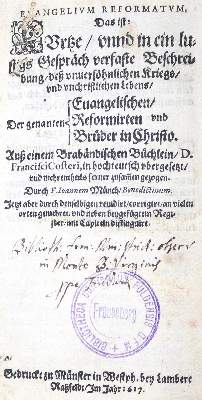 EVANGELIVM REFORMATVM,
Das ist:
Kurtze / vnnd in ein lu-
stigs Gespräch verfaste Beschrei-
bung / deß vnuersöhnlichen Kriegs /
vnd vnchristlichen Lebens /
Euangelischen /
Der genanten Reformirten vnd
Brüder in Christo.
Auß einem Brabändischen Büchlein / D.
Francisci Costeri, in hochteutsch vbergesetzt /
vnd mehrentheils ferner zusamen gezogen.
Durch F. Ioannem Münch Benedictinum.
Jetzt aber durch denselbigen reuidirt / corrigirt / an vielen
orten gemehret, vnd neben beygefügtem Regi-
ster / mit Capiteln distinguirt.
in Monte B. Virginis
Fraustberg
Gedruckt zu Münster in Westph. bey Lambert
Raßfeldt / Im Jahr / 1617.